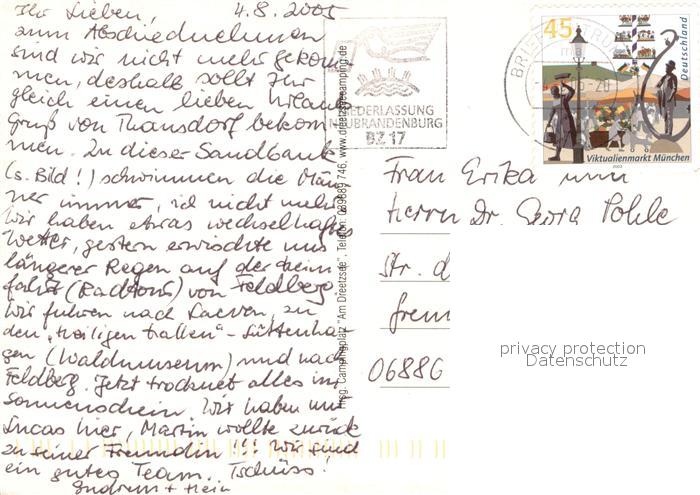 Ihr Lieben, 4.8.2005
zum Abschiednehmen
sind wir nicht mehr gekom-
men, deshalb sollt Ihr
gleich einen lieben Urlaubs
Gruß von Thomsdorf bekom
men. Zu dieser Sandbank
(s. Bild!) schwimmen die Män
ner immer, ich nicht mehr.
Wir haben etwas wechselhaftes
Wetter, gestern erwischte uns
längerer Regen auf der Heim
fahrt (Radtour) von Feldberg.
Wir fuhren nach Carwitz, zu
den "Heiligen Hallen" - Lüttenha-
gen (Waldmuseum) und nach
Feldberg. Jetzt trocknet alles im
Sonnenschein. Wir haben nur
Lucas hier, Martin wollte zurück
zu seiner Freundin!!! Wir sind
ein gutes Team. Tschüss!
Gudrun + Hein
Hrsg. Campingplatz "Am Dreetzsee", Telefon: 039889 746, www.dreetzseecamping.de
NIEDERLASSUNG
NEUBRANDENBURG
BZ 17
BRIEFZENTRUM
45
Deutschland
Viktualienmarkt München
2003
Frau Erika und
Herrn Dr. Georg Pohle
Str. d
06886
privacy protection
Datenschutz